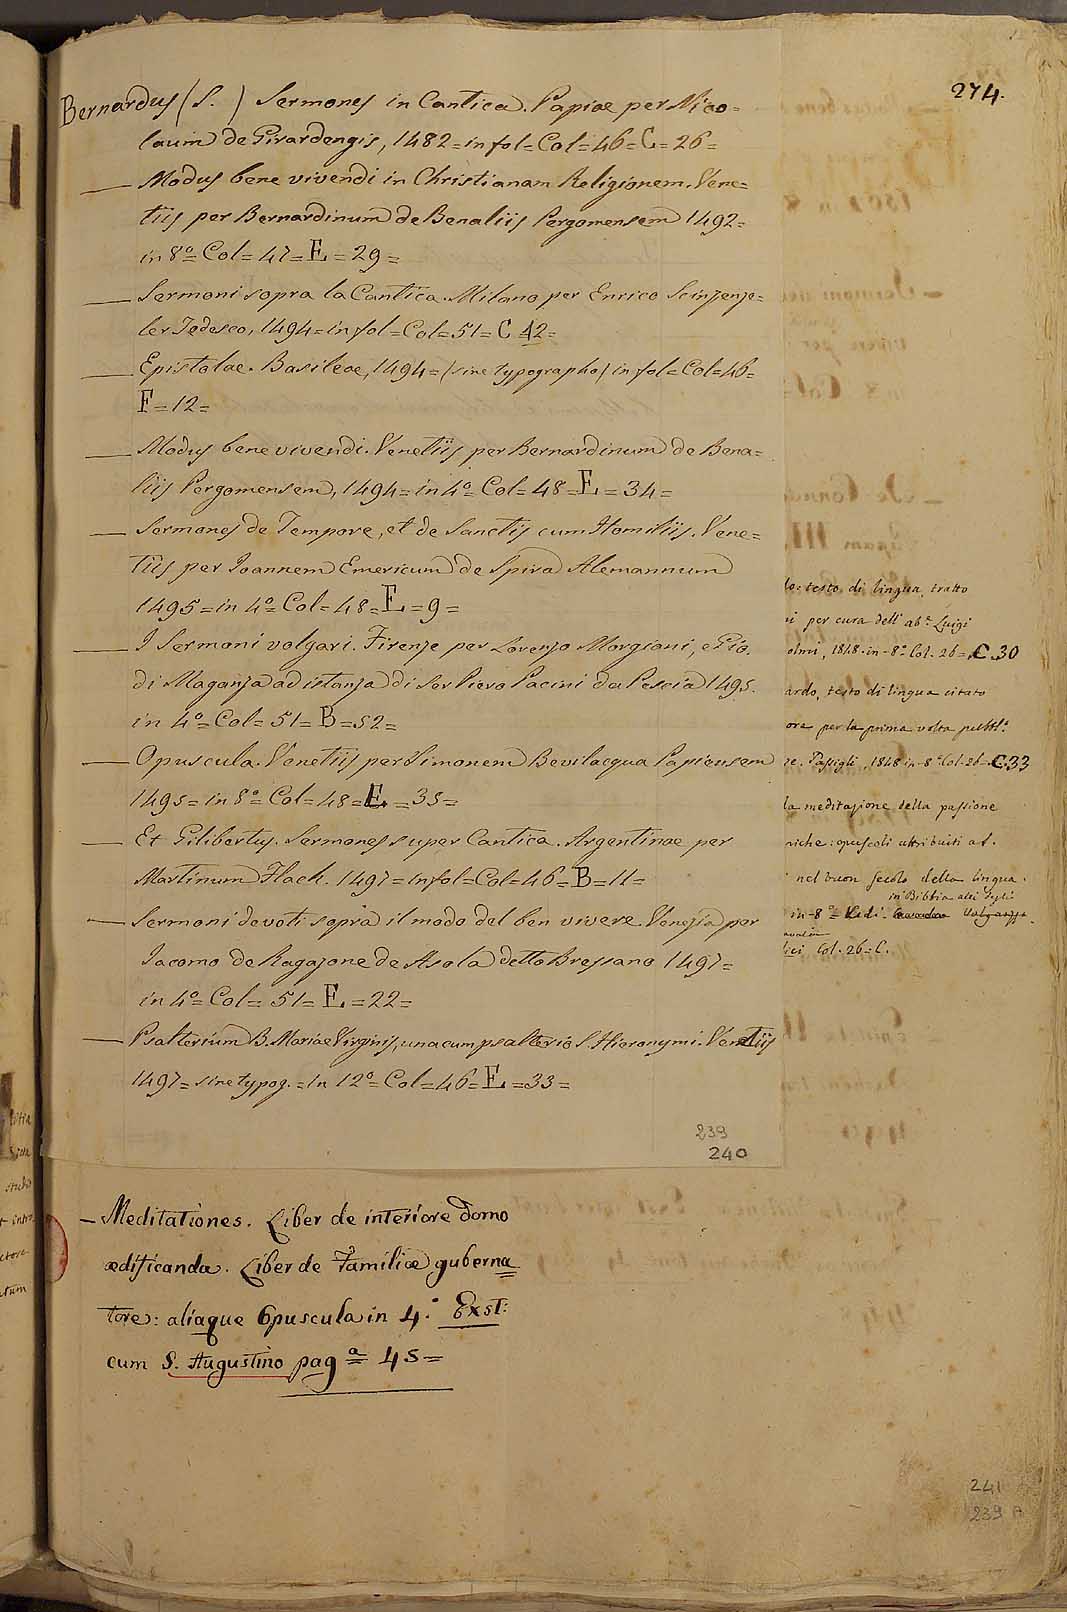 274.
Bernardus (S.) Sermones in Cantica. Papiae per Nico=
laum de Girardengis, 1482 = in fol = Col = 46 = C = 26 =
— Modus bene vivendi in Christianam Religionem. Vene=
tiis per Bernardinum de Benaliis Pergomensem 1492 =
in 8º = Col = 47 = E = 29 =
— Sermoni sopra la Cantica. Milano per Enrico Scinzenze=
ler Tedesco, 1494 = in fol = Col = 51 = C 42 =
— Epistolae. Basileae, 1494 = (sine typographo) in fol = Col = 46 =
F = 12 =
— Modus bene vivendi. Venetiis per Bernardinum de Bena=
liis Pergomensem, 1494 = in 4º = Col = 48 = E = 34 =
— Sermones de Tempore, et de Sanctis cum Homiliis. Vene=
tiis per Joannem Emericum de Spira Alemannum
1495 = in 4º = Col = 48 = E = 9 =
— I Sermoni volgari. Firenze per Lorenzo Morgiani, e Gio.
di Maganza ad istanza di Ser Piero Pacini da Pescia 1495.
in 4º = Col = 51 = B = 52 =
— Opuscula. Venetiis per Simonem Bevilacqua Papiensem
1495 = in 8º = Col = 48 = E = 35 =
— Et Gilibertus. Sermones super Cantica. Argentinae per
Martinum Flach. 1497 = in fol = Col = 46 = B = 11 =
— Sermoni devoti sopra il modo del ben vivere. Venezia per
Jacomo de Ragazone de Asola detto Bressano 1497 =
in 4º = Col = 51 = E = 22 =
— Psalterium B. Mariae Virginis, una cum psalterio S. Hieronymi. Venetiis
1497 = sine typog. = in 12º = Col = 46 = E = 33 =
239
240
testo di lingua, tratto
per cura dell' ab.e Luigi
1848. in-8º Col. 26 = C. 30
testo di lingua citato
ora per la prima volta pubbl.º
Passigli, 1848 in-8º Col. 26 = C. 33
la meditazione della passione
opuscoli attribuiti a S.
nel buon secolo della lingua.
in Bibbia alli Segli
in-8º = Vedi Volgarizz.
Col. 26 = C.
— Meditationes. Liber de interiore domo
ædificanda. Liber de Familiæ guberna=
tore: aliaque Opuscula in 4.º Exst:
cum S. Augustino pag.ª 45 =
241
239 A